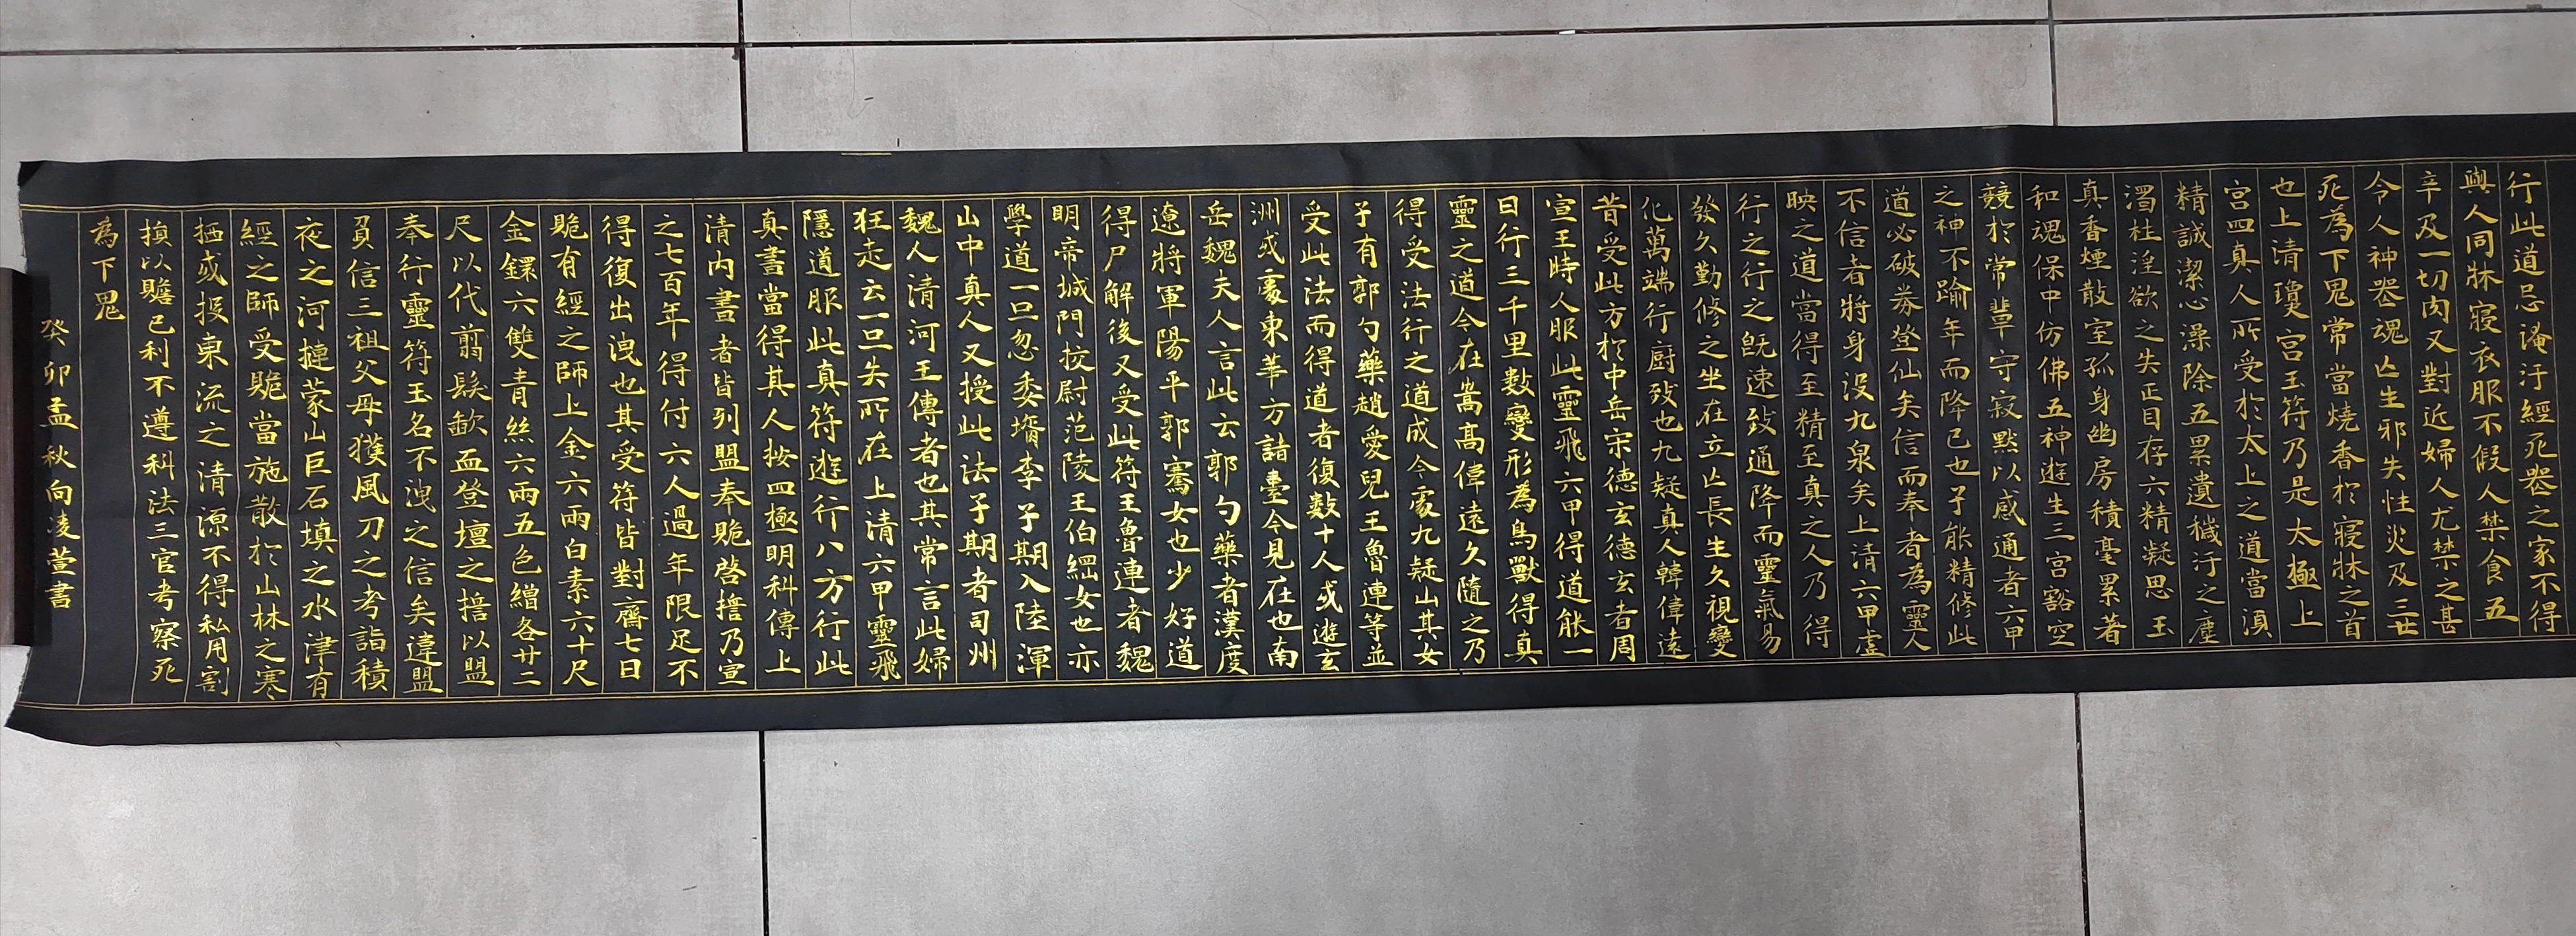 行此道忌淹汙經死喪之家不得
與人同牀寢衣服不假人禁食五
辛及一切肉又對近婦人尤禁之甚
令人神喪魂亡生邪失性災及三世
死為下鬼常當燒香於寢牀之首
也上清瓊宮玉符乃是太極上
宮四真人所受於太上之道當須
精誠潔心澡除五累遺穢汙之塵
濁杜淫欲之失正目存六精凝思玉
真香煙散室孤身幽房積毫累著
和魂保中仿佛五神遊生三宮豁空
競於常輩守寂默以感通者六甲
之神不踰年而降已也子能精修此
道必破券登仙矣信而奉者為靈人
不信者將身沒九泉矣上清六甲虛
映之道當得至精至真之人乃得
行之行之既速致通降而靈氣易
發久勤修之坐在立亡長生久視變
化萬端行廚致也九疑真人韓偉遠
昔受此方於中岳宋德玄德玄者周
宣王時人服此靈飛六甲得道能一
日行三千里數變形為鳥獸得真
靈之道今在嵩高偉遠久隨之乃
得受法行之道成今處九疑山其女
子有郭勺藥趙愛兒王魯連等並
受此法而得道者復數十人或遊玄
洲或處東華方諸臺今見在也南
岳魏夫人言此云郭勺藥者漢度
遼將軍陽平郭騫女也少好道
得尸解後又受此符王魯連者魏
明帝城門挍尉范陵王伯綱女也亦
學道一旦忽委壻李子期入陸渾
山中真人又授此法子期者司州
魏人清河王傳者也其常言此婦
狂走云一旦失所在上清六甲靈飛
隱道服此真符遊行八方行此
真書當得其人按四極明科傳上
清內書者皆列盟奉贶啓擔乃宣
之七百年得付六人過年限足不
得復出洩也其受符皆對齋七日
贶有經之師上金六兩白素六十尺
金鐶六雙青絲六兩五色繒各廿二
尺以代翦髮歃血登壇之擔以盟
奉行靈符玉名不洩之信矣違盟
負信三祖父母獲風刀之考詣積
夜之河摙蒙山巨石填之水津有
經之師受贶當施散於山林之寒
栖或投東流之清源不得私用割
損以贍己利不遵科法三官考察死
為下鬼
癸卯孟秋向淩萱書